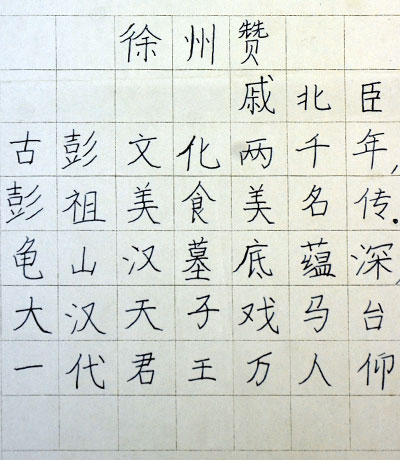 徐州赞
戚北臣
古彭文化两千年,
彭祖美食美名传.
龟山汉墓底蕴深,
大汉天子戏马台
一代君王万人仰